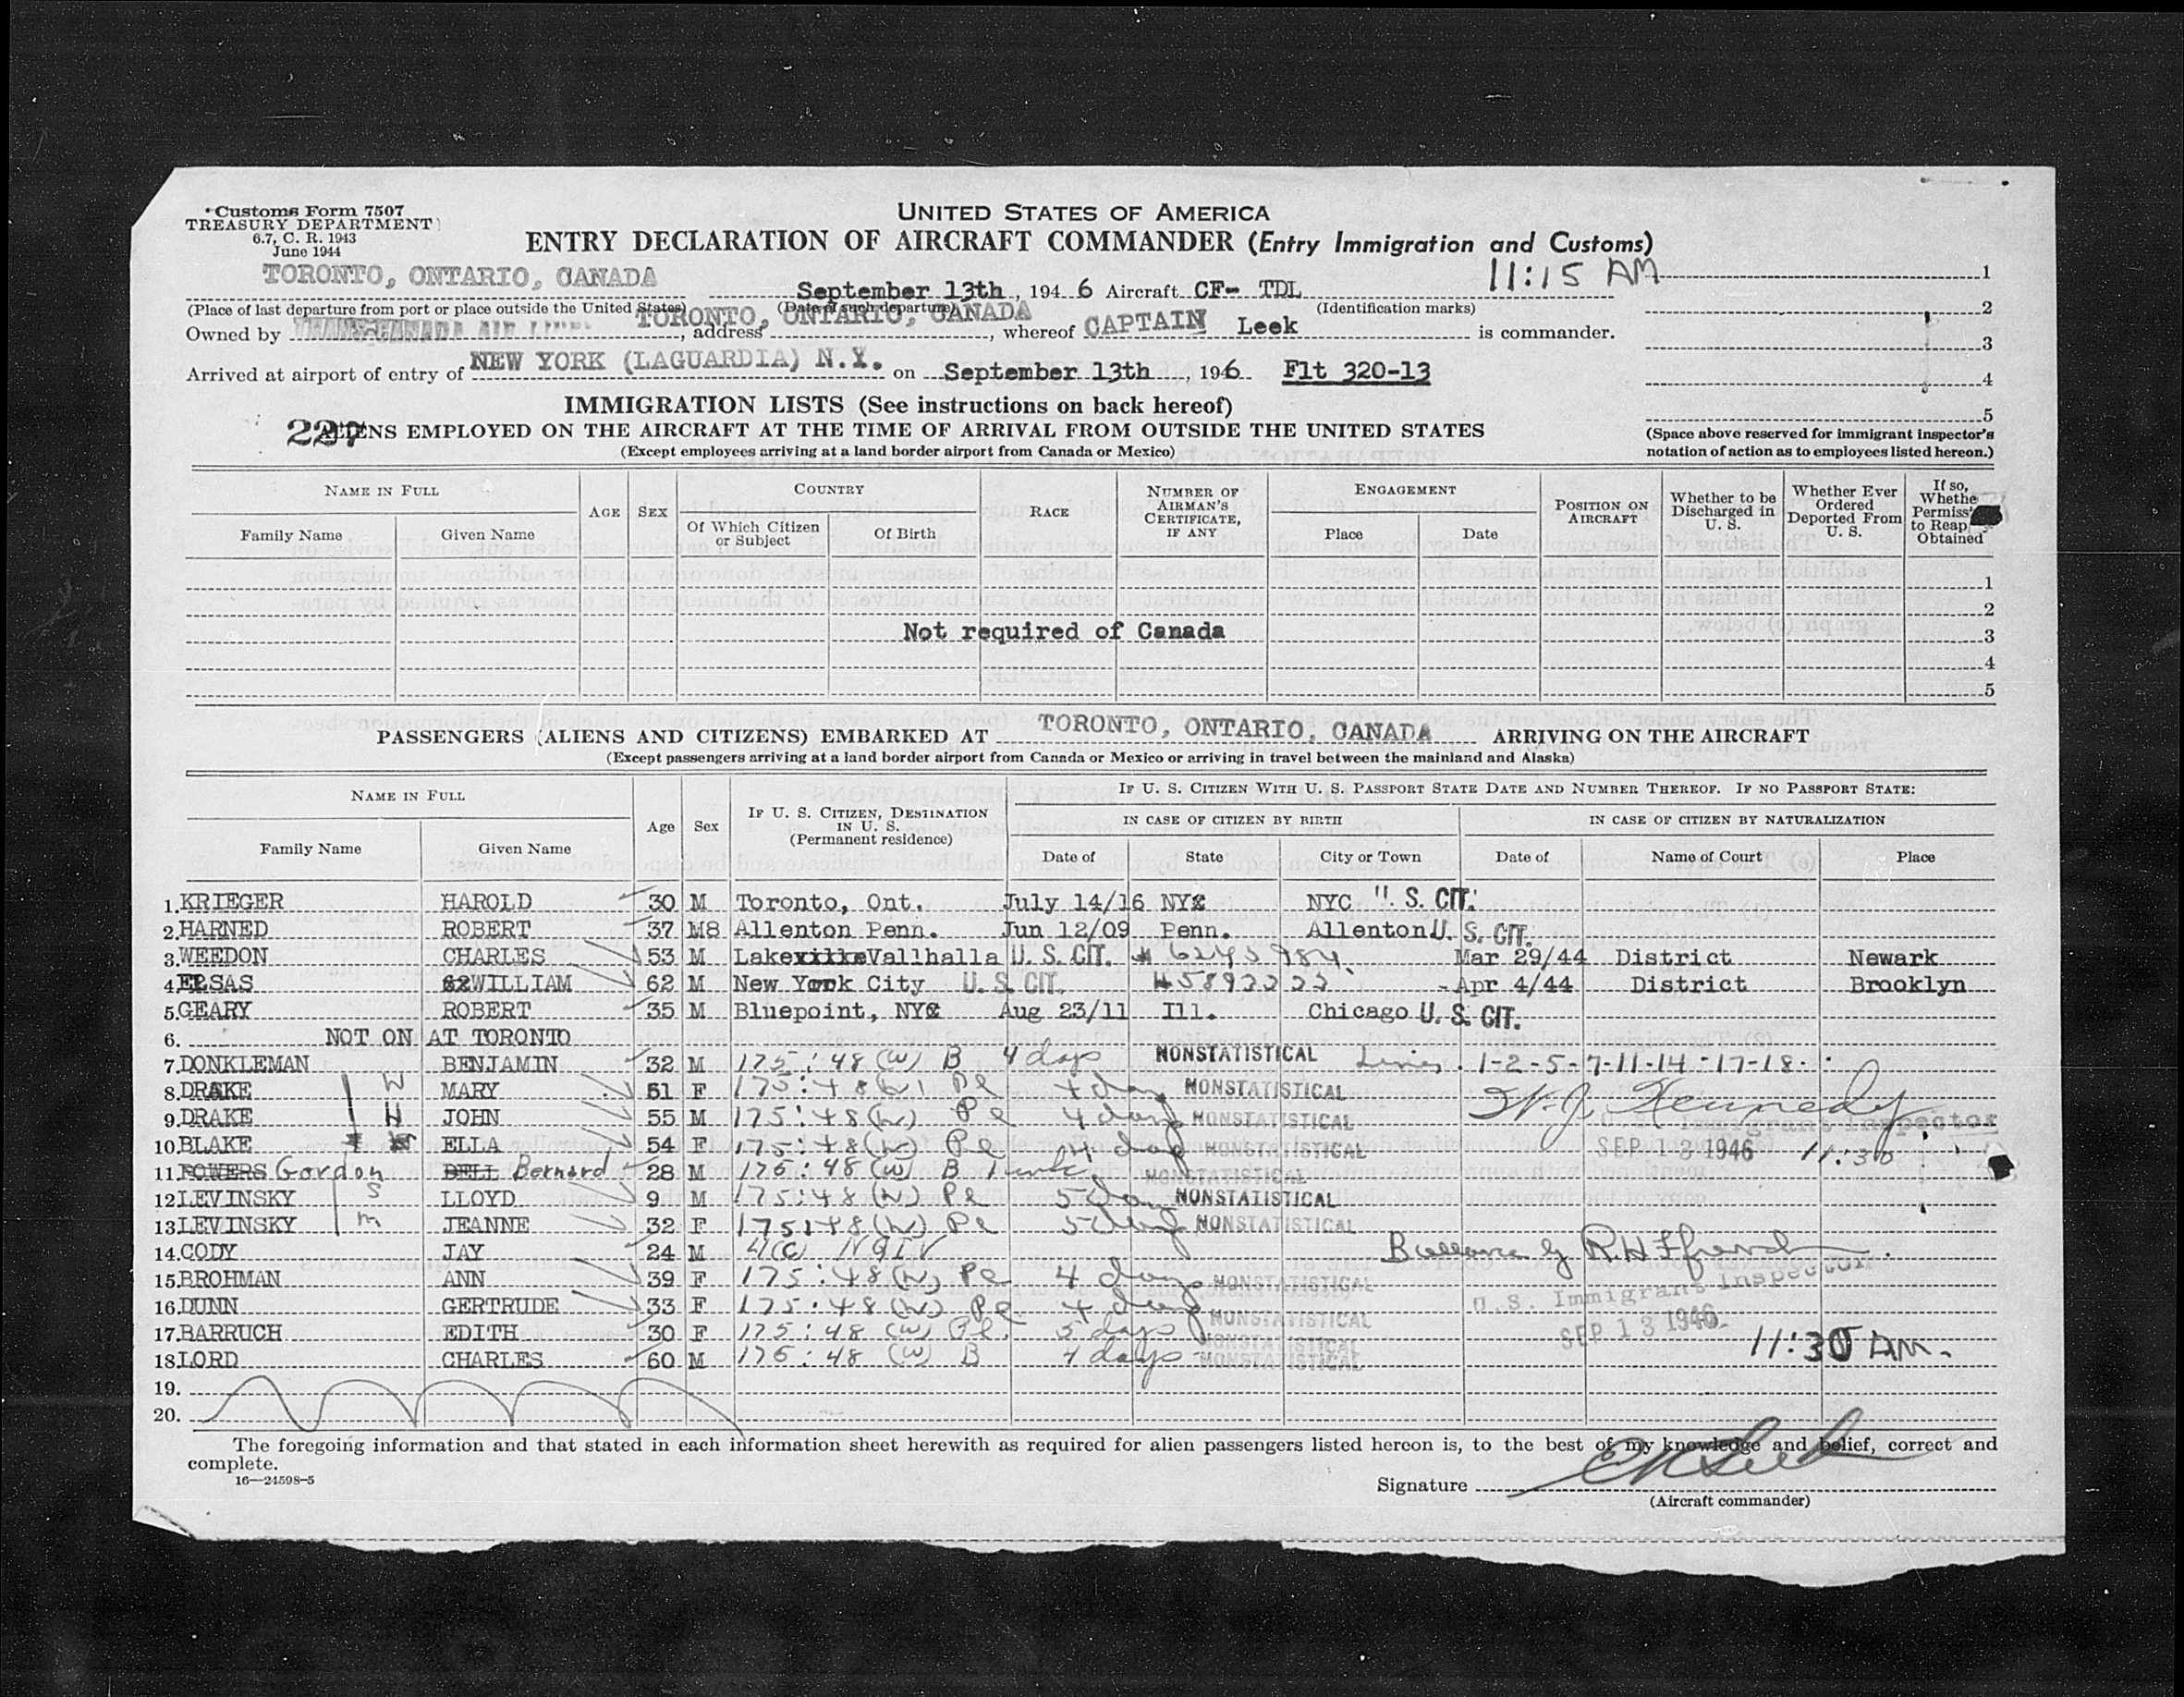 Customs Form 7507
TREASURY DEPARTMENT
6.7, C. R. 1943
June 1944
UNITED STATES OF AMERICA
ENTRY DECLARATION OF AIRCRAFT COMMANDER (Entry Immigration and Customs)
11:15 AM
1
TORONTO, ONTARIO, CANADA September 13th, 1946 Aircraft CF- TDL
(Place of last departure from port or place outside the United States) (Date of such departure) (Identification marks)
2
Owned by TRANS-CANADA AIR LINES, address TORONTO, ONTARIO, CANADA, whereof CAPTAIN Leek is commander.
3
Arrived at airport of entry of NEW YORK (LAGUARDIA) N.Y. on September 13th, 1946 Flt 320-13
4
IMMIGRATION LISTS (See instructions on back hereof)
5
227
ALIENS EMPLOYED ON THE AIRCRAFT AT THE TIME OF ARRIVAL FROM OUTSIDE THE UNITED STATES
(Except employees arriving at a land border airport from Canada or Mexico)
(Space above reserved for immigrant inspector's
notation of action as to employees listed hereon.)
NAME IN FULL AGE SEX COUNTRY RACE NUMBER OF AIRMAN'S CERTIFICATE, IF ANY ENGAGEMENT POSITION ON AIRCRAFT Whether to be Discharged in U. S. Whether Ever Ordered Deported From U. S. If so, Whethe Permiss' to Reap Obtained
Family Name Given Name Of Which Citizen or Subject Of Birth Place Date
1
2
Not required of Canada 3
4
5
PASSENGERS (ALIENS AND CITIZENS) EMBARKED AT TORONTO, ONTARIO, CANADA ARRIVING ON THE AIRCRAFT
(Except passengers arriving at a land border airport from Canada or Mexico or arriving in travel between the mainland and Alaska)
NAME IN FULL Age Sex IF U. S. CITIZEN, DESTINATION IN U. S. (Permanent residence) IF U. S. CITIZEN WITH U. S. PASSPORT STATE DATE AND NUMBER THEREOF. IF NO PASSPORT STATE:
IN CASE OF CITIZEN BY BIRTH IN CASE OF CITIZEN BY NATURALIZATION
Family Name Given Name Date of State City or Town Date of Name of Court Place
1. KRIEGER HAROLD 30 M Toronto, Ont. July 14/16 NY NYC U. S. CIT.
2. HARNED ROBERT 37 M8 Allenton Penn. Jun 12/09 Penn. Allenton U. S. CIT.
3. WEEDON CHARLES 53 M Lake Vallhalla U. S. CIT. # 6245984 Mar 29/44 District Newark
4. ELSAS WILLIAM 62 M New York City U. S. CIT. #5892222 Apr 4/44 District Brooklyn
5. GEARY ROBERT 35 M Bluepoint, NY Aug 23/11 Ill. Chicago U. S. CIT.
6. NOT ON AT TORONTO
7. DONKLEMAN BENJAMIN 32 M 175:48 (W) B 4 days NONSTATISTICAL Lines 1-2-5-7-11-14-17-18.
8. DRAKE W MARY 51 F 175:48(W) Pl 4 days NONSTATISTICAL
9. DRAKE H JOHN 55 M 175:48(W) Pl 4 days NONSTATISTICAL W. J. Kennedy
U. S. Immigrant Inspector
10. BLAKE ELLA 54 F 175:48(W) Pl 4 days NONSTATISTICAL SEP 13 1946 11:30
11. POWERS Gordon DELL Bernard 28 M 175:48 (W) B 1 wk NONSTATISTICAL
12. LEVINSKY S LLOYD 9 M 175:48 (W) Pl 5 days NONSTATISTICAL
13. LEVINSKY m JEANNE 32 F 175:48(W) Pl 5 days NONSTATISTICAL
14. CODY JAY 24 M 4(C) NQIV Balance by R.H. Ffrench
15. BROHMAN ANN 39 F 175:48(W) Pl 4 days NONSTATISTICAL
U.S. Immigrant Inspector
16. DUNN GERTRUDE 33 F 175:48(W) Pl 4 days NONSTATISTICAL
SEP 13 1946
17. BARRUCH EDITH 30 F 175:48 (W) Pl. 5 days NONSTATISTICAL
11:30 AM.
18. LORD CHARLES 60 M 175:48 (W) B 4 days NONSTATISTICAL
19.
20.
The foregoing information and that stated in each information sheet herewith as required for alien passengers listed hereon is, to the best of my knowledge and belief, correct and
complete.
16—24598-5
Signature
(Aircraft commander)